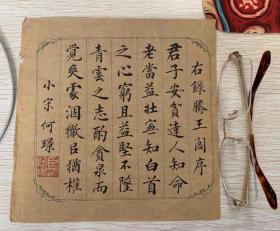 右錄滕王閣序
君子安貧達人知命
老當益壯寧知白首
之心窮且益堅不墜
青雲之志酌貪泉而
覺爽處涸轍㠯猶懽
小宋何璟